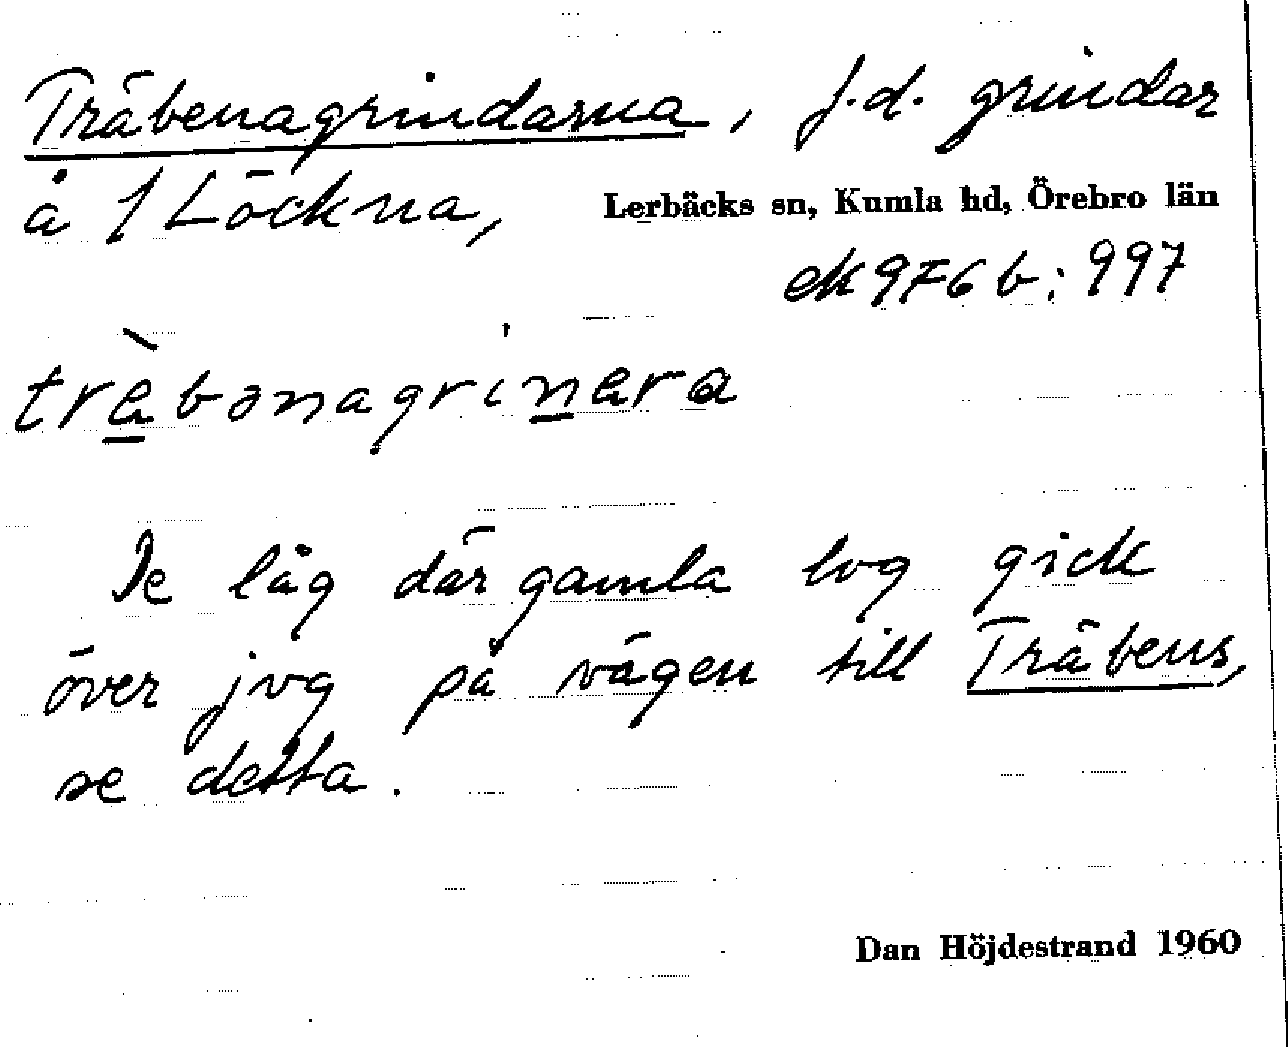 Träbenagrindarna, f.d. grindar
å 1 Löckna, Lerbäcks sn, Kumla hd, Örebro län
ek 9F6b: 997
trèbənagrinəra
De låg där gamla lvg gick
över jvg på vägen till Träbens,
se detta.
Dan Höjdestrand 1960